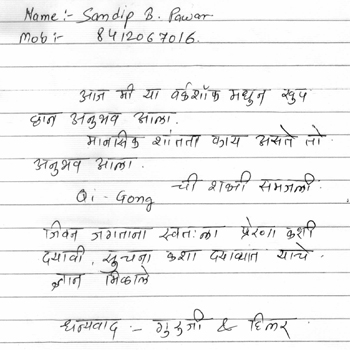 Name:- Sandip B. Pawar
Mob:- 8412067016.
आज मी या वर्कशॉक मधुन खुप
छान अनुभव आला.
मानसिक शांतता काय असते तो
अनुभव आला.
Qi-Gong ची शक्ती समजली.
जिवन जगताना स्वतःला प्रेरणा कशी
दयावी, सूचना कशा दयाव्यात याचे
ज्ञान मिळाले
धन्यवाद - गुरुजी &